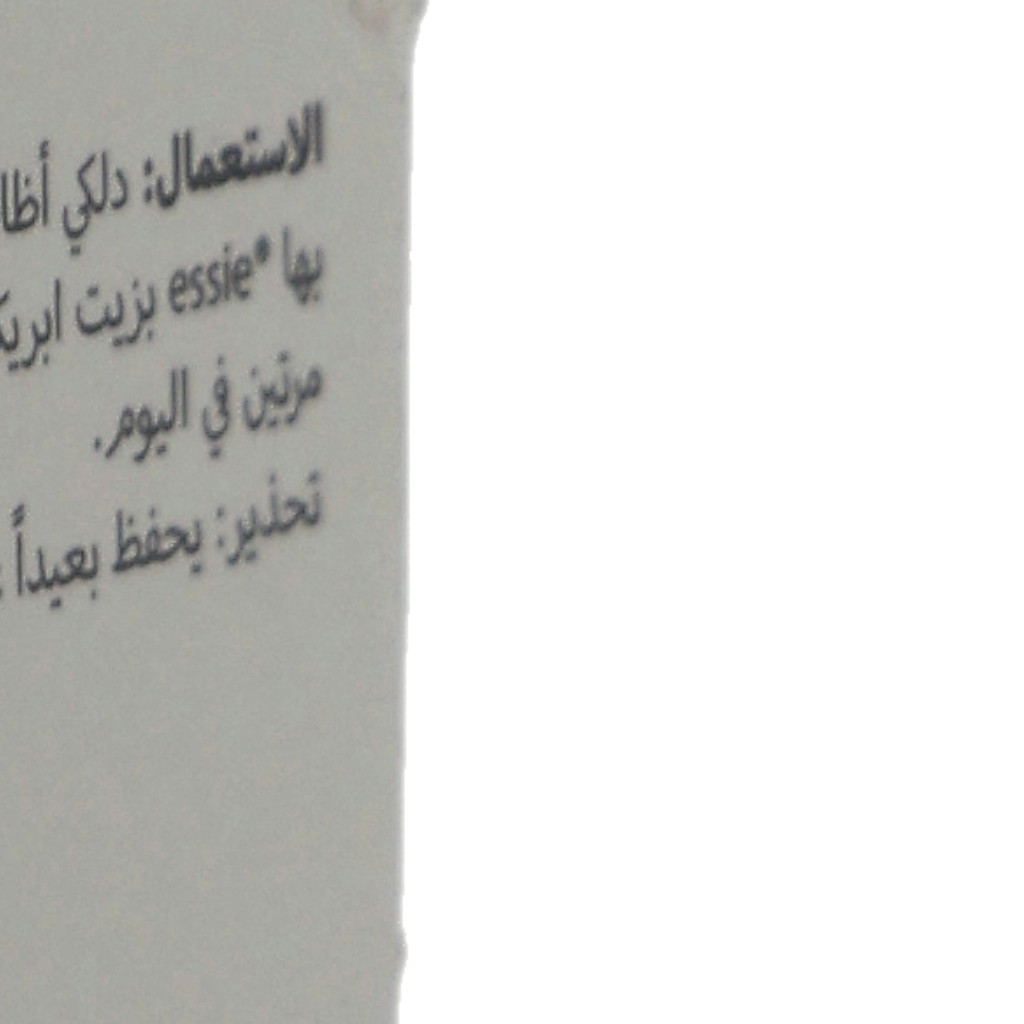 الاستعمال: دلكي
بها *essie بزيت
مرتين في اليوم.
تحذير: يحفظ بعيداً